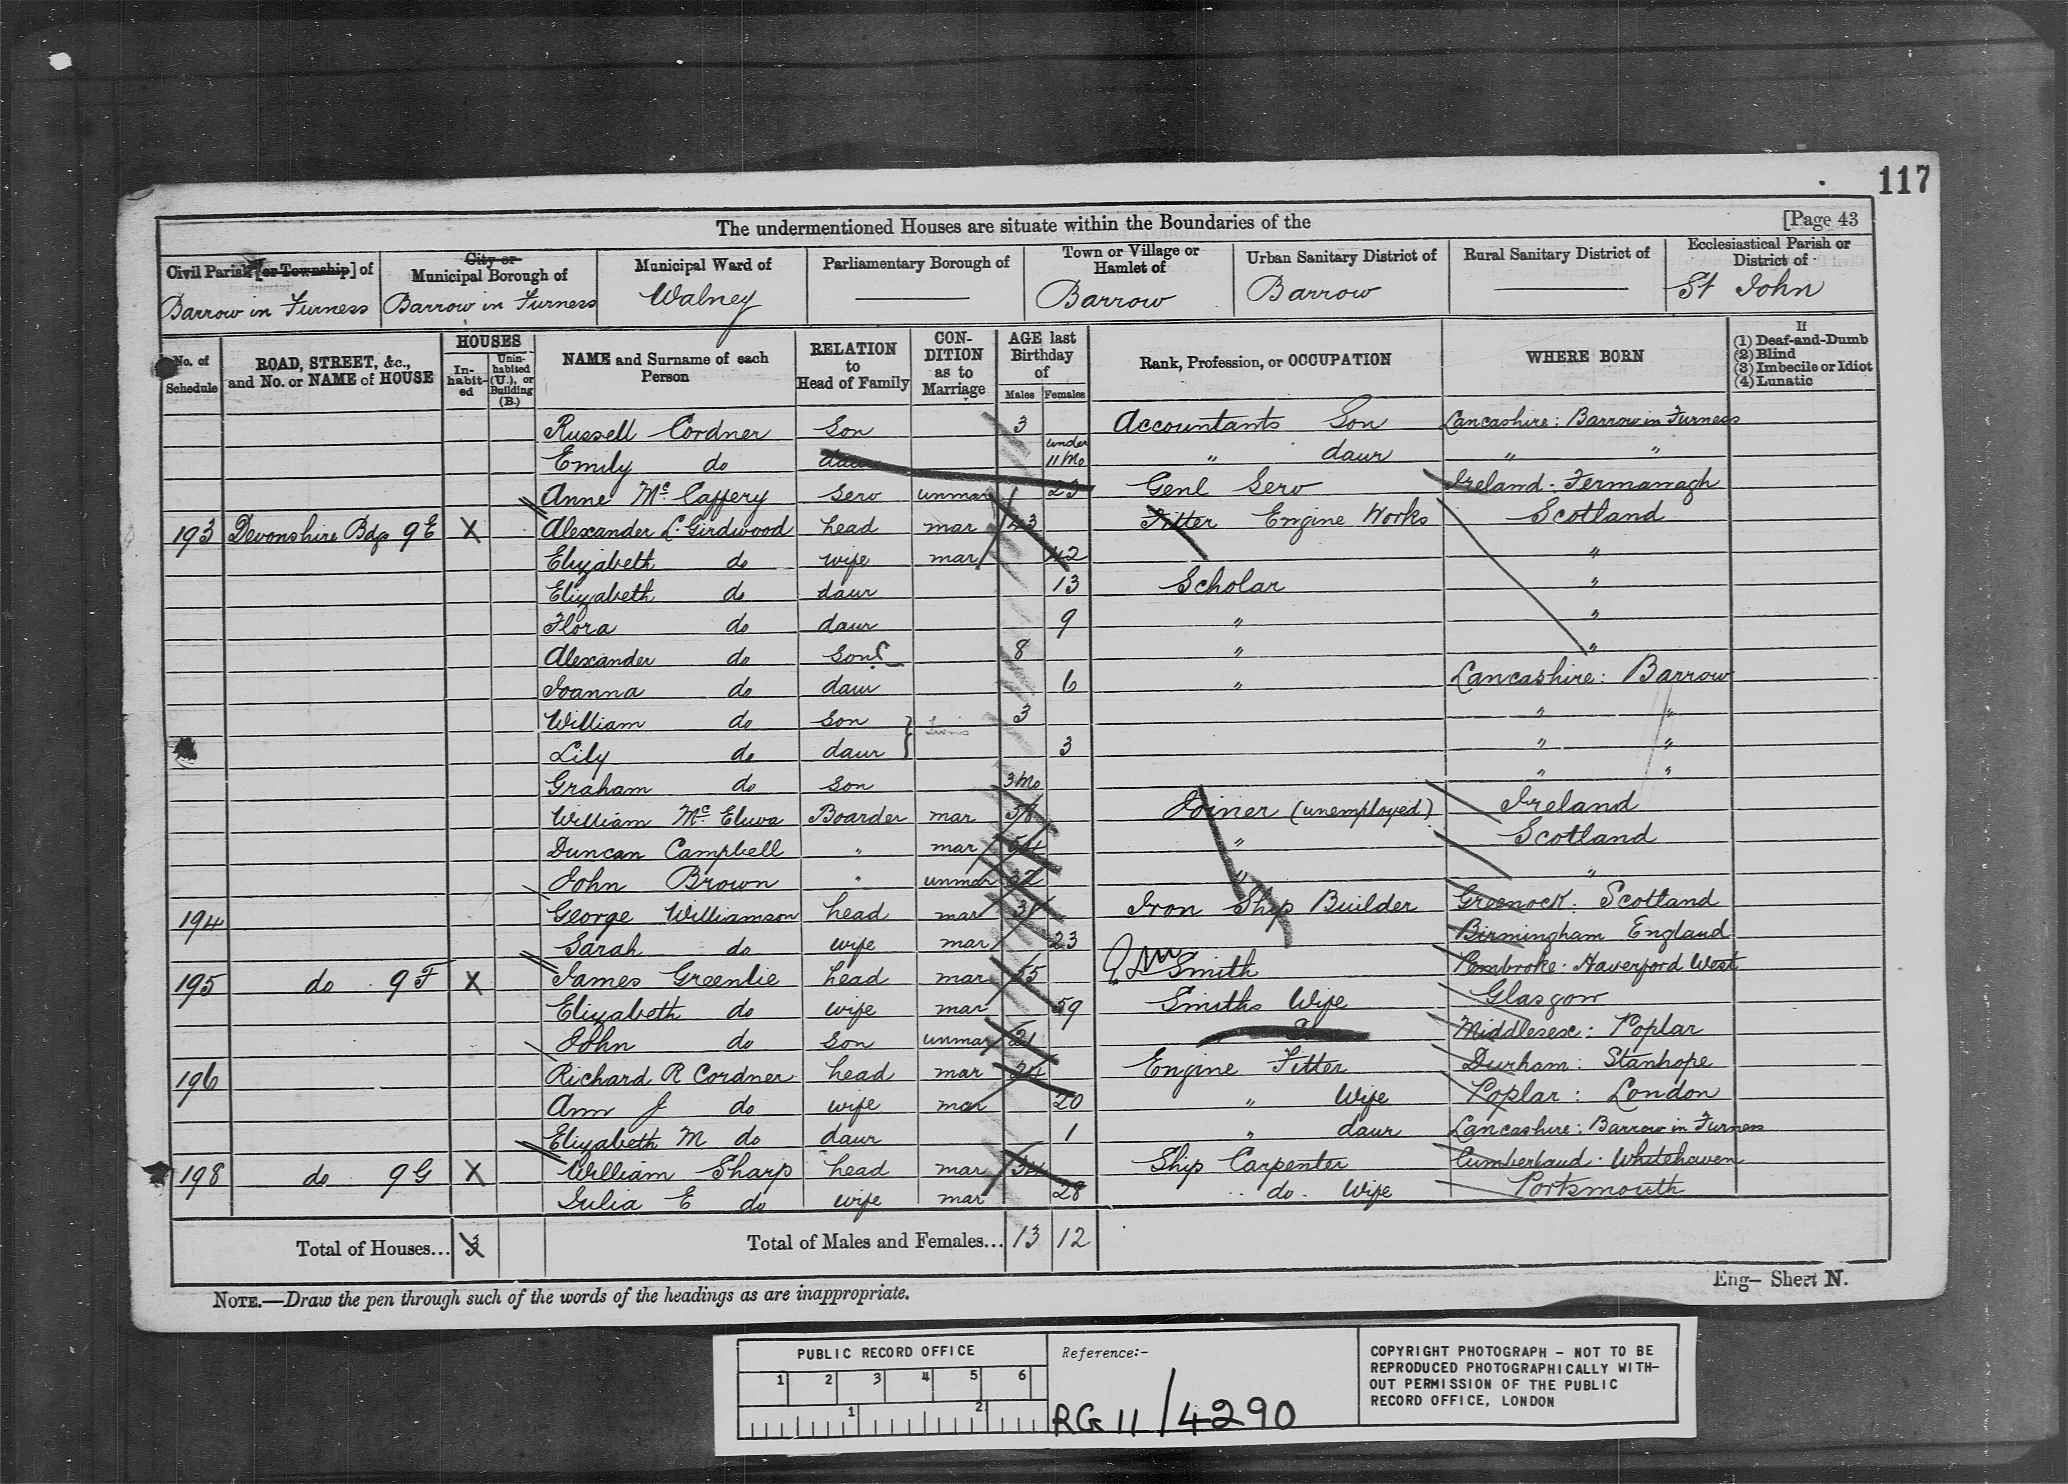 117
The undermentioned Houses are situate within the Boundaries of the [Page 43
Civil Parish [or Township] of | City or Municipal Borough of | Municipal Ward of | Parliamentary Borough of | Town or Village or Hamlet of | Urban Sanitary District of | Rural Sanitary District of | Ecclesiastical Parish or District of
Barrow in Furness | Barrow in Furness | Walney | Barrow | Barrow | St John
No. of Schedule | ROAD, STREET, &c., and No. or NAME of HOUSE | HOUSES Inhabited | Uninhabited (U.), or Building (B.) | NAME and Surname of each Person | RELATION to Head of Family | CONDITION as to Marriage | AGE last Birthday of Males | Females | Rank, Profession, or OCCUPATION | WHERE BORN | If (1) Deaf-and-Dumb (2) Blind (3) Imbecile or Idiot (4) Lunatic
Russell Cordner Son 3 Accountants Son Lancashire: Barrow in Furness
Emily do daur under 11 Mo " daur " "
Anne Mc Caffery Serv unmar 23 Genl Serv Ireland. Fermanagh
193 Devonshire Bdgs 9 E X Alexander L. Girdwood head mar 43 Fitter Engine Works Scotland
Elizabeth do wife mar 42 "
Elizabeth do daur 13 Scholar "
Flora do daur 9 " "
Alexander do Son 8 " "
Joanna do daur 6 " Lancashire: Barrow
William do Son } Twins 3 " "
Lily do daur 3 " "
Graham do Son 3 Mo " "
William Mc Elwa Boarder mar 38 Joiner (unemployed) Ireland
Duncan Campbell " mar " Scotland
John Brown " unmar " "
194 George Williamson head mar Iron Ship Builder Greenock: Scotland
Sarah do wife mar 23 Birmingham England
195 do 9 F X James Greenlie head mar 55 Smith Pembroke. Haverford West
Elizabeth do wife mar 59 Smiths Wife Glasgow
John do Son unmar 21 Middlesex: Poplar
196 Richard R Cordner head mar 24 Engine Fitter Durham: Stanhope
Ann J do wife mar 20 " Wife Poplar: London
Elizabeth M do daur 1 " daur Lancashire: Barrow in Furness
198 do 9 G X William Sharp head mar Ship Carpenter Cumberland. Whitehaven
Julia E do wife mar 28 do. Wife Portsmouth
Total of Houses... 3 Total of Males and Females... 13 12
NOTE.—Draw the pen through such of the words of the headings as are inappropriate.
Eng— Sheet N.
PUBLIC RECORD OFFICE
1 2 3 4 5 6
1 2
Reference:-
RG 11 / 4290
COPYRIGHT PHOTOGRAPH - NOT TO BE
REPRODUCED PHOTOGRAPHICALLY WITH-
OUT PERMISSION OF THE PUBLIC
RECORD OFFICE, LONDON